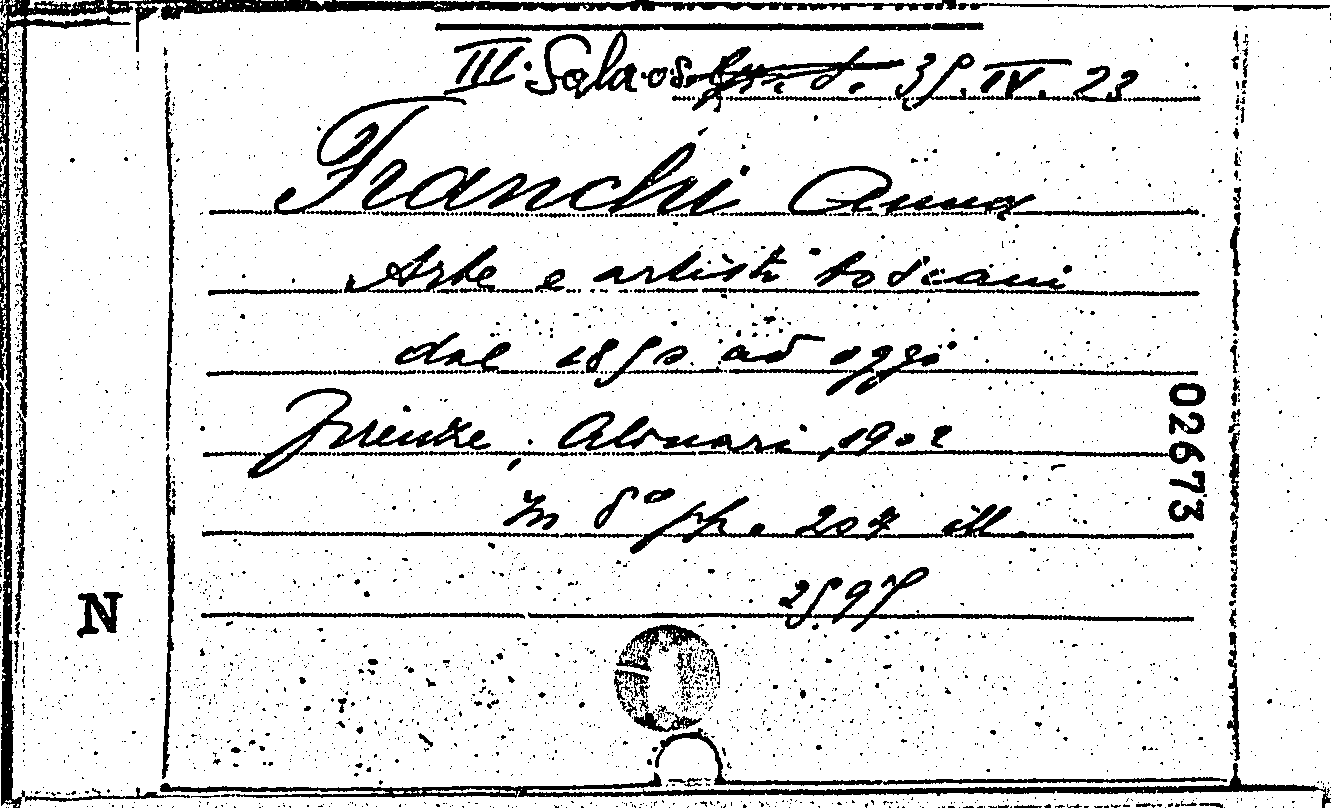 III. Sala. 35.IV.23
Franchi Anna
Arte e artisti toscani
dal 1850 ad oggi
Firenze, Alinari, 1902
In 8° pp. 207 ill.
02673
N